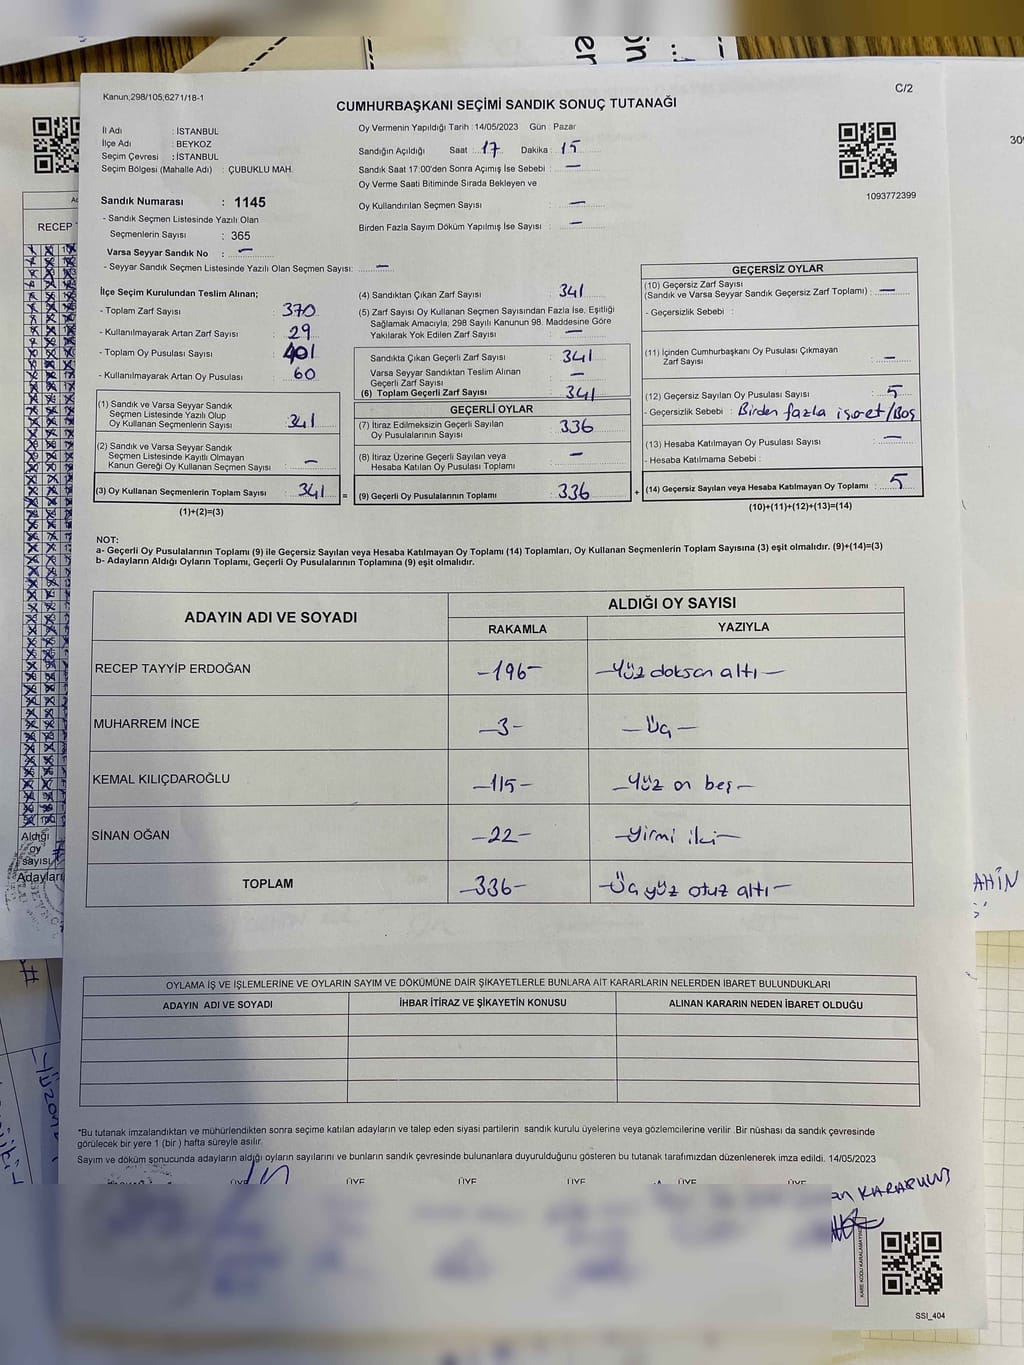 er
ön
Kanun;298/105,6271/18-1
C/2
CUMHURBAŞKANI SEÇİMİ SANDIK SONUÇ TUTANAĞI
İl Adı : İSTANBUL
İlçe Adı : BEYKOZ
Seçim Çevresi : İSTANBUL
Seçim Bölgesi (Mahalle Adı) : ÇUBUKLU MAH.
Oy Vermenin Yapıldığı Tarih :14/05/2023 Gün : Pazar
Sandığın Açıldığı Saat : 17 Dakika : 15
Sandık Saat 17:00'den Sonra Açımış İse Sebebi : —
Oy Verme Saati Bitiminde Sırada Bekleyen ve
Oy Kullandırılan Seçmen Sayısı : —
Birden Fazla Sayım Döküm Yapılmış İse Sayısı : —
1093772399
Sandık Numarası : 1145
- Sandık Seçmen Listesinde Yazılı Olan
Seçmenlerin Sayısı : 365
Varsa Seyyar Sandık No : —
- Seyyar Sandık Seçmen Listesinde Yazılı Olan Seçmen Sayısı: —
İlçe Seçim Kurulundan Teslim Alınan;
- Toplam Zarf Sayısı : 370
- Kullanılmayarak Artan Zarf Sayısı : 29
- Toplam Oy Pusulası Sayısı : 401
- Kullanılmayarak Artan Oy Pusulası : 60
(1) Sandık ve Varsa Seyyar Sandık
Seçmen Listesinde Yazılı Olup
Oy Kullanan Seçmenlerin Sayısı : 341
(2) Sandık ve Varsa Seyyar Sandık
Seçmen Listesinde Kayıtlı Olmayan
Kanun Gereği Oy Kullanan Seçmen Sayısı : —
(3) Oy Kullanan Seçmenlerin Toplam Sayısı : 341 =
(1)+(2)=(3)
(4) Sandıktan Çıkan Zarf Sayısı : 341
(5) Zarf Sayısı Oy Kullanan Seçmen Sayısından Fazla İse, Eşitliği
Sağlamak Amacıyla; 298 Sayılı Kanunun 98. Maddesine Göre
Yakılarak Yok Edilen Zarf Sayısı : —
Sandıkta Çıkan Geçerli Zarf Sayısı : 341
Varsa Seyyar Sandıktan Teslim Alınan
Geçerli Zarf Sayısı : —
(6) Toplam Geçerli Zarf Sayısı : 341
GEÇERLİ OYLAR
(7) İtiraz Edilmeksizin Geçerli Sayılan
Oy Pusulalarının Sayısı : 336
(8) İtiraz Üzerine Geçerli Sayılan veya
Hesaba Katılan Oy Pusulası Toplamı : —
(9) Geçerli Oy Pusulalarının Toplamı : 336 +
GEÇERSİZ OYLAR
(10) Geçersiz Zarf Sayısı
(Sandık ve Varsa Seyyar Sandık Geçersiz Zarf Toplamı) : —
- Geçersizlik Sebebi :
(11) İçinden Cumhurbaşkanı Oy Pusulası Çıkmayan
Zarf Sayısı : —
(12) Geçersiz Sayılan Oy Pusulası Sayısı : 5
- Geçersizlik Sebebi : Birden fazla işaret/Boş
(13) Hesaba Katılmayan Oy Pusulası Sayısı : —
- Hesaba Katılmama Sebebi :
(14) Geçersiz Sayılan veya Hesaba Katılmayan Oy Toplamı : 5
(10)+(11)+(12)+(13)=(14)
NOT:
a- Geçerli Oy Pusulalarının Toplamı (9) ile Geçersiz Sayılan veya Hesaba Katılmayan Oy Toplamı (14) Toplamları, Oy Kullanan Seçmenlerin Toplam Sayısına (3) eşit olmalıdır. (9)+(14)=(3)
b- Adayların Aldığı Oyların Toplamı, Geçerli Oy Pusulalarının Toplamına (9) eşit olmalıdır.
ADAYIN ADI VE SOYADI
ALDIĞI OY SAYISI
RAKAMLA YAZIYLA
RECEP TAYYİP ERDOĞAN —196— —Yüz doksan altı—
MUHARREM İNCE —3— —Üç—
KEMAL KILIÇDAROĞLU —115— —Yüz on beş—
SİNAN OĞAN —22— —Yirmi iki—
TOPLAM —336— —Üç yüz otuz altı—
OYLAMA İŞ VE İŞLEMLERİNE VE OYLARIN SAYIM VE DÖKÜMÜNE DAİR ŞİKAYETLERLE BUNLARA AİT KARARLARIN NELERDEN İBARET BULUNDUKLARI
ADAYIN ADI VE SOYADI İHBAR İTİRAZ VE ŞİKAYETİN KONUSU ALINAN KARARIN NEDEN İBARET OLDUĞU
*Bu tutanak imzalandıktan ve mühürlendikten sonra seçime katılan adayların ve talep eden siyasi partilerin sandık kurulu üyelerine veya gözlemcilerine verilir .Bir nüshası da sandık çevresinde
görülecek bir yere 1 (bir ) hafta süreyle asılır.
Sayım ve döküm sonucunda adayların aldığı oyların sayılarını ve bunların sandık çevresinde bulunanlara duyurulduğunu gösteren bu tutanak tarafımızdan düzenlenerek imza edildi. 14/05/2023
ÜYE ÜYE ÜYE ÜYE ÜYE ÜYE
KARE KODU KARALAMAYINIZ
SSI_404
RECEP
Aldığı
oy
sayısı
Adayları
AHİN